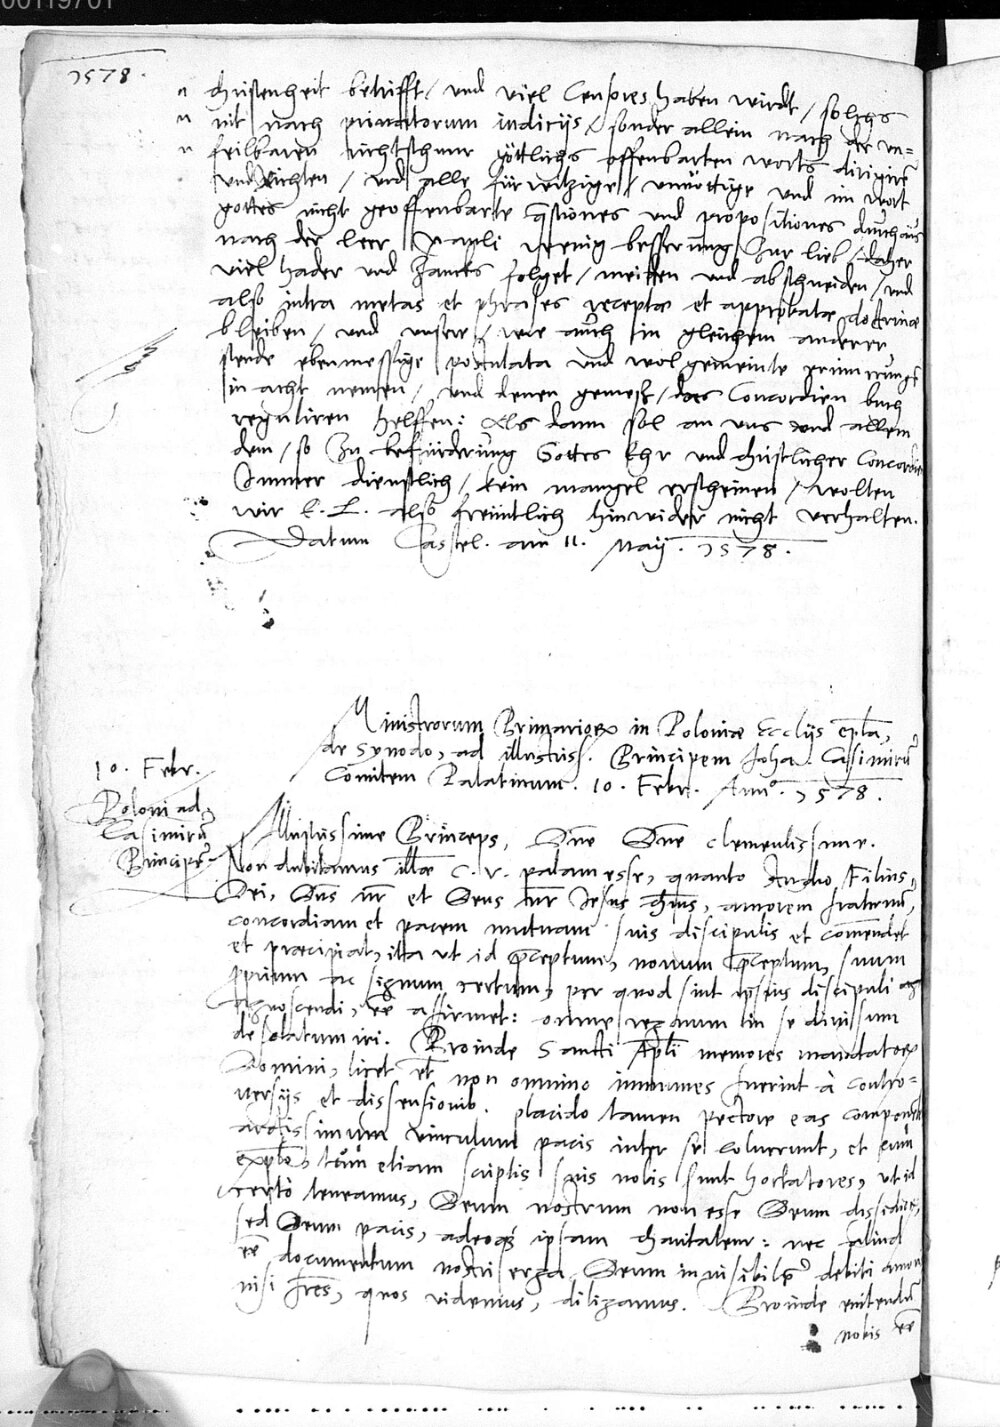 00119701
1578.
christenheit betrifft / und viel Censores haben wirdt / solchs
nit nach privatorum iudicijs / sonder allein nach der un=
feilbaren richtschnur göttlichs offenbarten worts dirigirn
und richten / und alle fürwitzige / unnöttige und im wort
gottes nicht geoffenbarte qstiones und propositiones durchaus
nach der leer Pauli wenig besserung Zur lieb / daher
viel hader und Zancks folget / meiden und abschneiden / und
also intra metas et phrases receptæ et approbatæ doctrinæ
bleiben / und unsere / wie auch in gleichem anderer
stende ebenmessige postulata und wolgemeinte erinnerungen
in acht nemen / und denen gemess / das Concordien buch
reguliren helffen: Als dann sol an uns und allem
dem / so Zu befürderung Gottes Ehr und christlicher Concordien
Immer dienstlich / kein mangel erscheinen / wolten
wir E. L. also freuntlich hinwider nicht verhalten.
Datum Cassel. am 11. May. 1578.
Ministrorum Primarioru in Poloniæ Ecclijs epla,
de Synodo, ad illustriss. Principem Joha. Casimirū
Comitem Palatinum. 10. Febr. Anno. 1578.
10. Febr.
Poloni ad
Casimirū
Principē
Illustrissime Princeps, Dne Dne clementissime.
Non dubitamus illæ C. V. palam esse, quanto studio Filius
Dei, Dns nr et Deus nr Jesus Chrus, amorem fraternū,
concordiam et pacem mutuam suis discipulis et comendet
et præcipiat, ita ut id præceptum, novum præceptum, suum
pprium ac signum certum, per quod sint ipsius discipuli
agnoscendi, ee affirmet: omne regnum in se divisum
desolatum iri. Proinde Sancti Apli memores mandatoru
Domini, licet et non omnino immunes fuerint à contro=
versijs et dissensionib. placido tamen pectore eas
arctissimum vinculum pacis inter se coluerunt, et cum
exemplo, tum etiam scriptis suis nobis sunt hortatores, ut id
certò teneamus, Deum nostrum non esse Deum dissidij,
sed Deum pacis, adeoq ipsam charitatem: nec aliud
ee documentum nostri erga Deum invisibilem debiti amoris
nisi fres, quos videmus, diligamus. Proinde enitendū
nobis ee